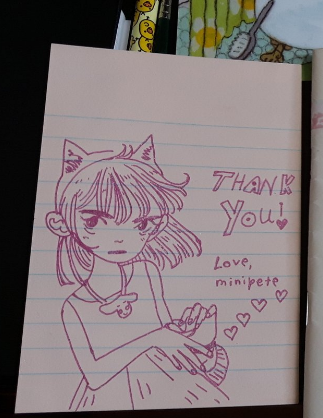 THANK
You!
Love,
minipete